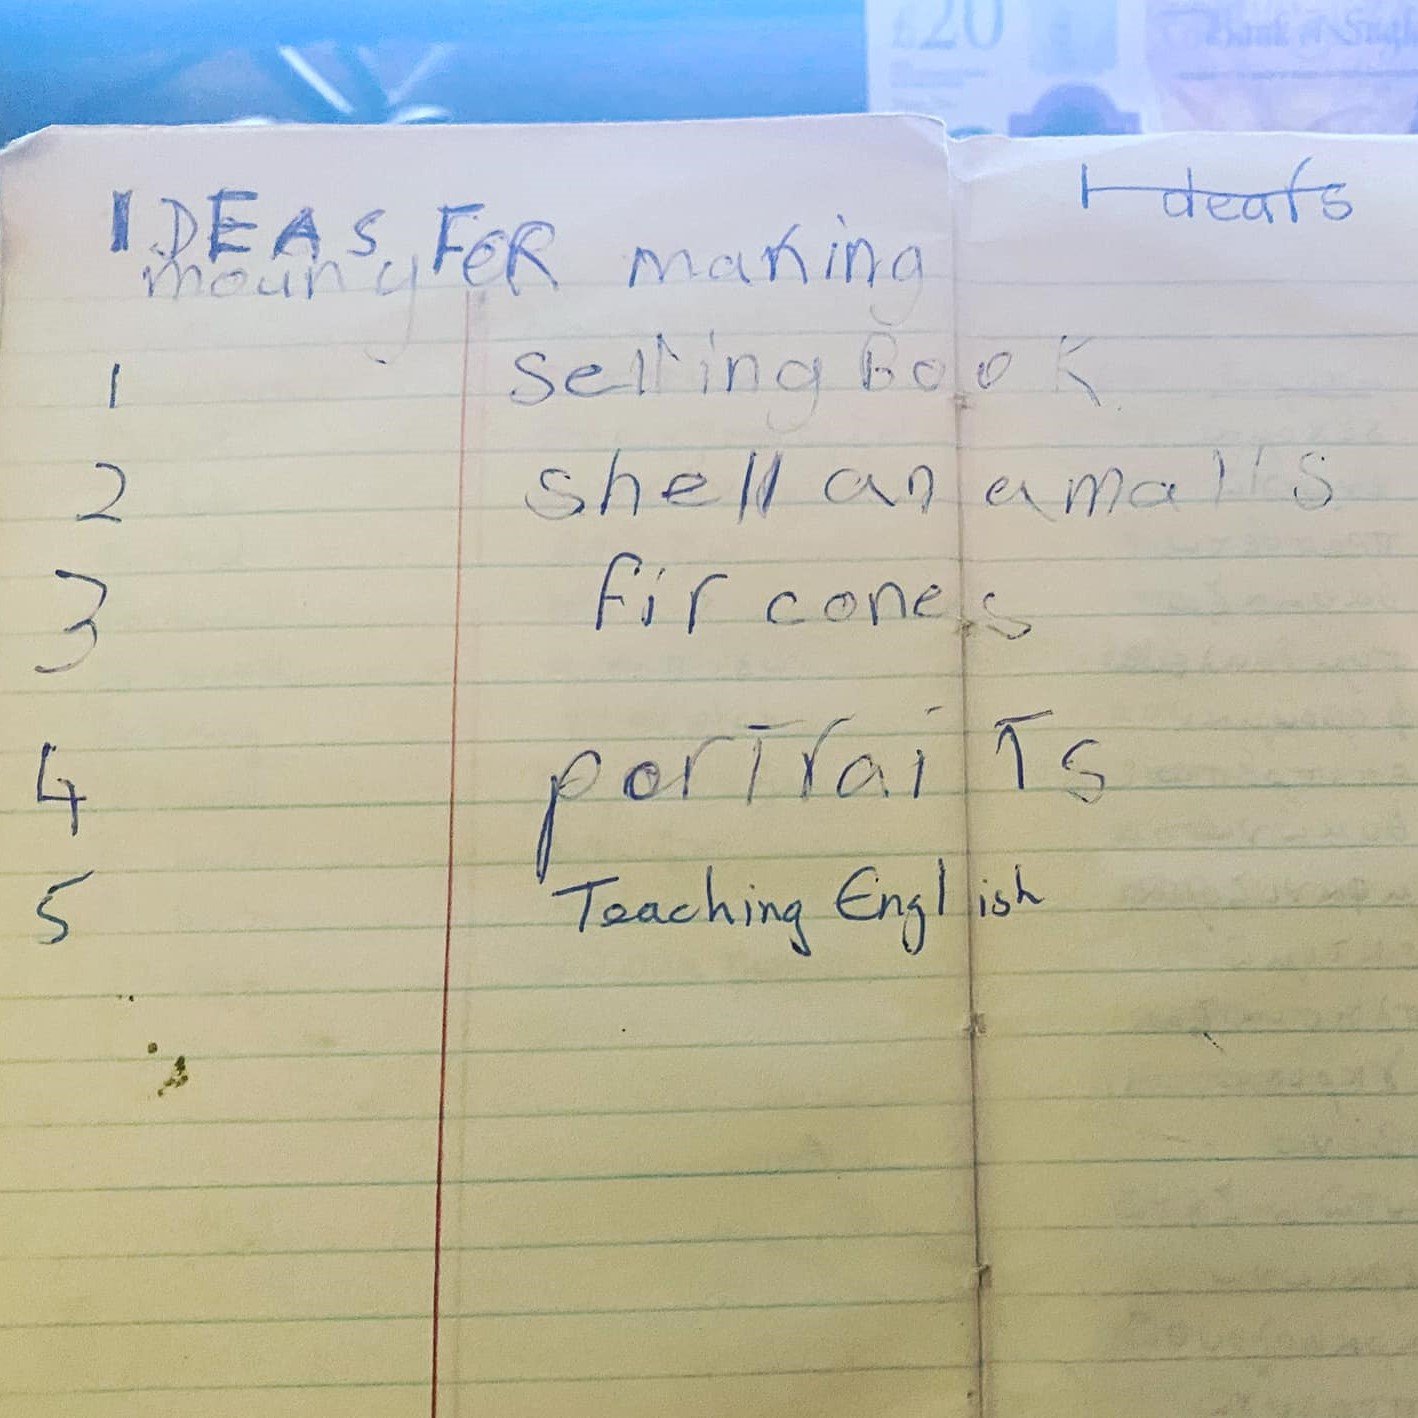 £20
Bank of Engl
Ideafs
IDEAS FOR making
mouny
1 Selling Book
2 shell anamals
3 fir cones
4 porTraiTs
5 Teaching English